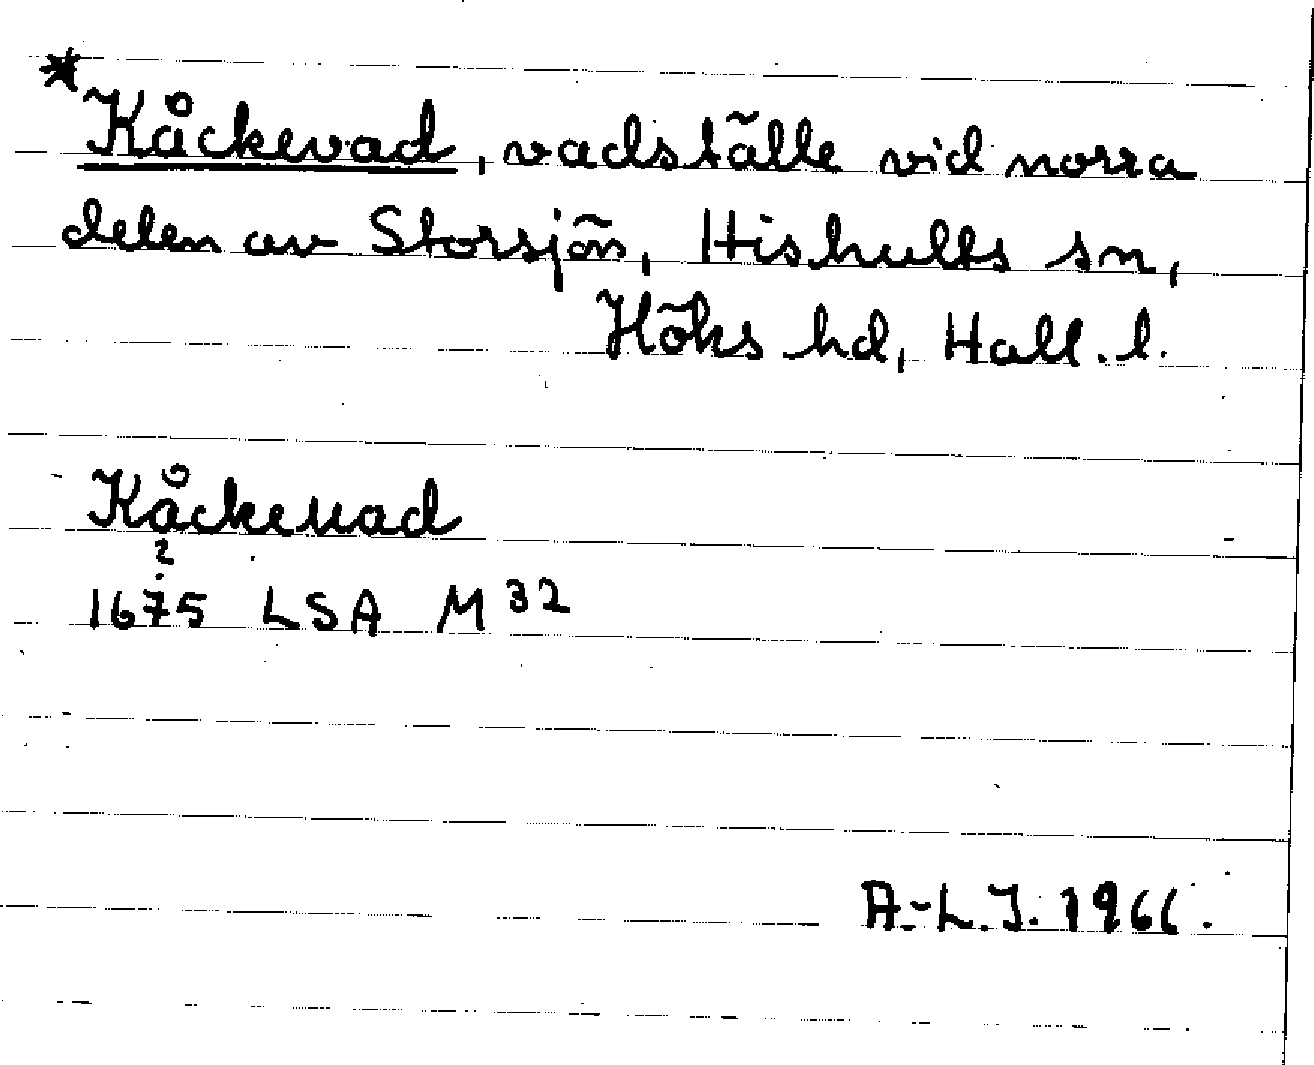 *Kåckevad, vadställe vid norra
delen av Storsjön, Hishults sn,
Höks hd, Hall. l.
Kåckeuad
?
1675 LSA M 32
A.-L.J. 1966.